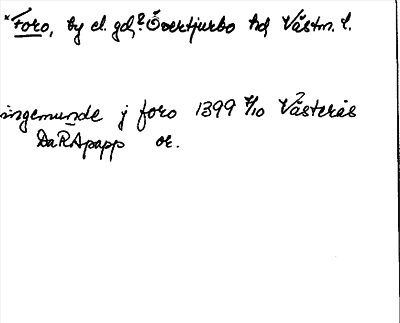 *Foro, by el. gd,? Övertjurbo hd Västm. l.
ingemunde j foro 1399 7/10 Västerås
DaRApapp or.